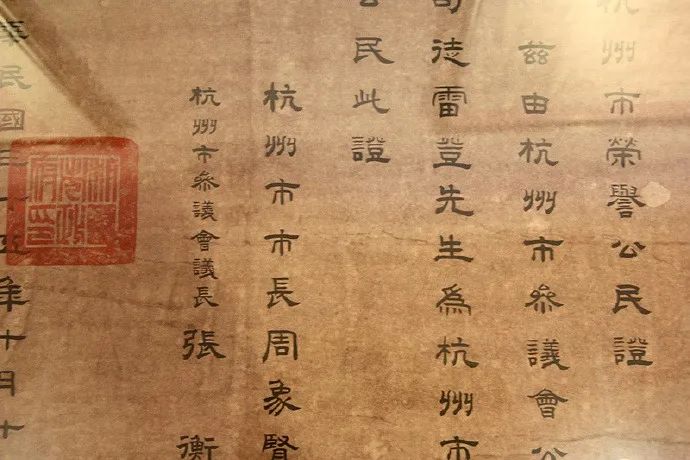 杭州市榮譽公民證
茲由杭州市參議會公
司徒雷登先生為杭州市
公民此證
杭州市市長周象賢
杭州市參議會議長 張 衡
華民國三十五年十月十